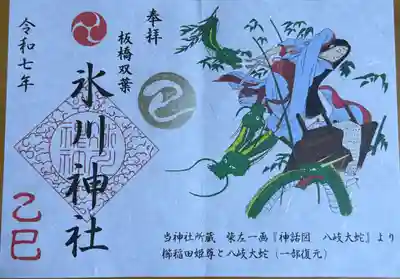 奉拝
板橋双葉
氷川神社
令和七年
乙巳
当神社所蔵 柴左一画『神話図 八岐大蛇』より
櫛稲田姫尊と八岐大蛇（一部復元）